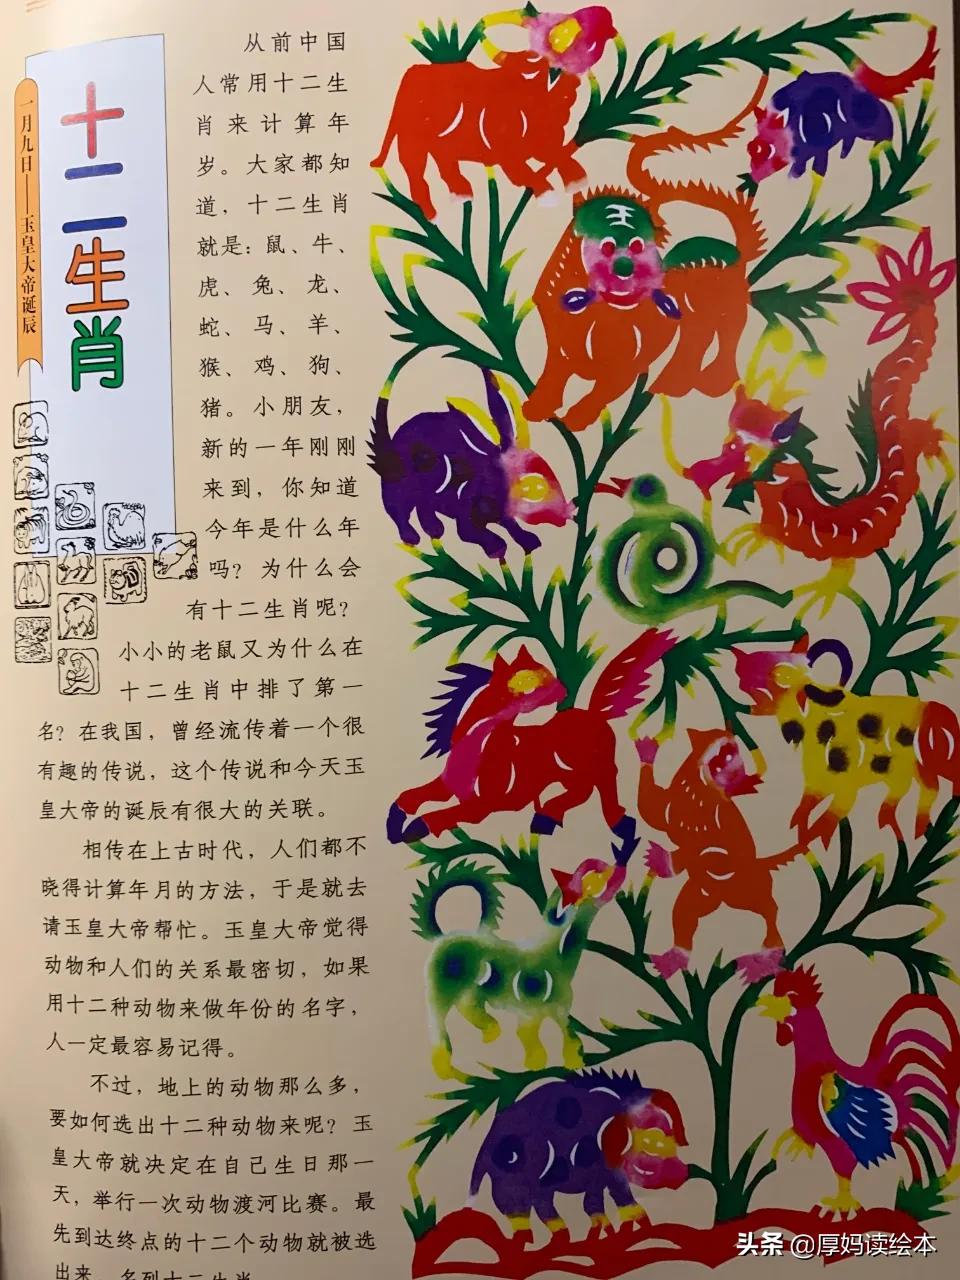 一月九日——玉皇大帝诞辰
十二生肖
从前中国
人常用十二生
肖来计算年
岁。大家都知
道，十二生肖
就是：鼠、牛、
虎、兔、龙、
蛇、马、羊、
猴、鸡、狗、
猪。小朋友，
新的一年刚刚
来到，你知道
今年是什么年
吗？为什么会
有十二生肖呢？
小小的老鼠又为什么在
十二生肖中排了第一
名？在我国，曾经流传着一个很
有趣的传说，这个传说和今天玉
皇大帝的诞辰有很大的关联。
相传在上古时代，人们都不
晓得计算年月的方法，于是就去
请玉皇大帝帮忙。玉皇大帝觉得
动物和人们的关系最密切，如果
用十二种动物来做年份的名字，
人一定最容易记得。
不过，地上的动物那么多，
要如何选出十二种动物来呢？玉
皇大帝就决定在自己生日那一
天，举行一次动物渡河比赛。最
先到达终点的十二个动物就被选
出来，名列十二生肖
王
头条 @厚妈读绘本